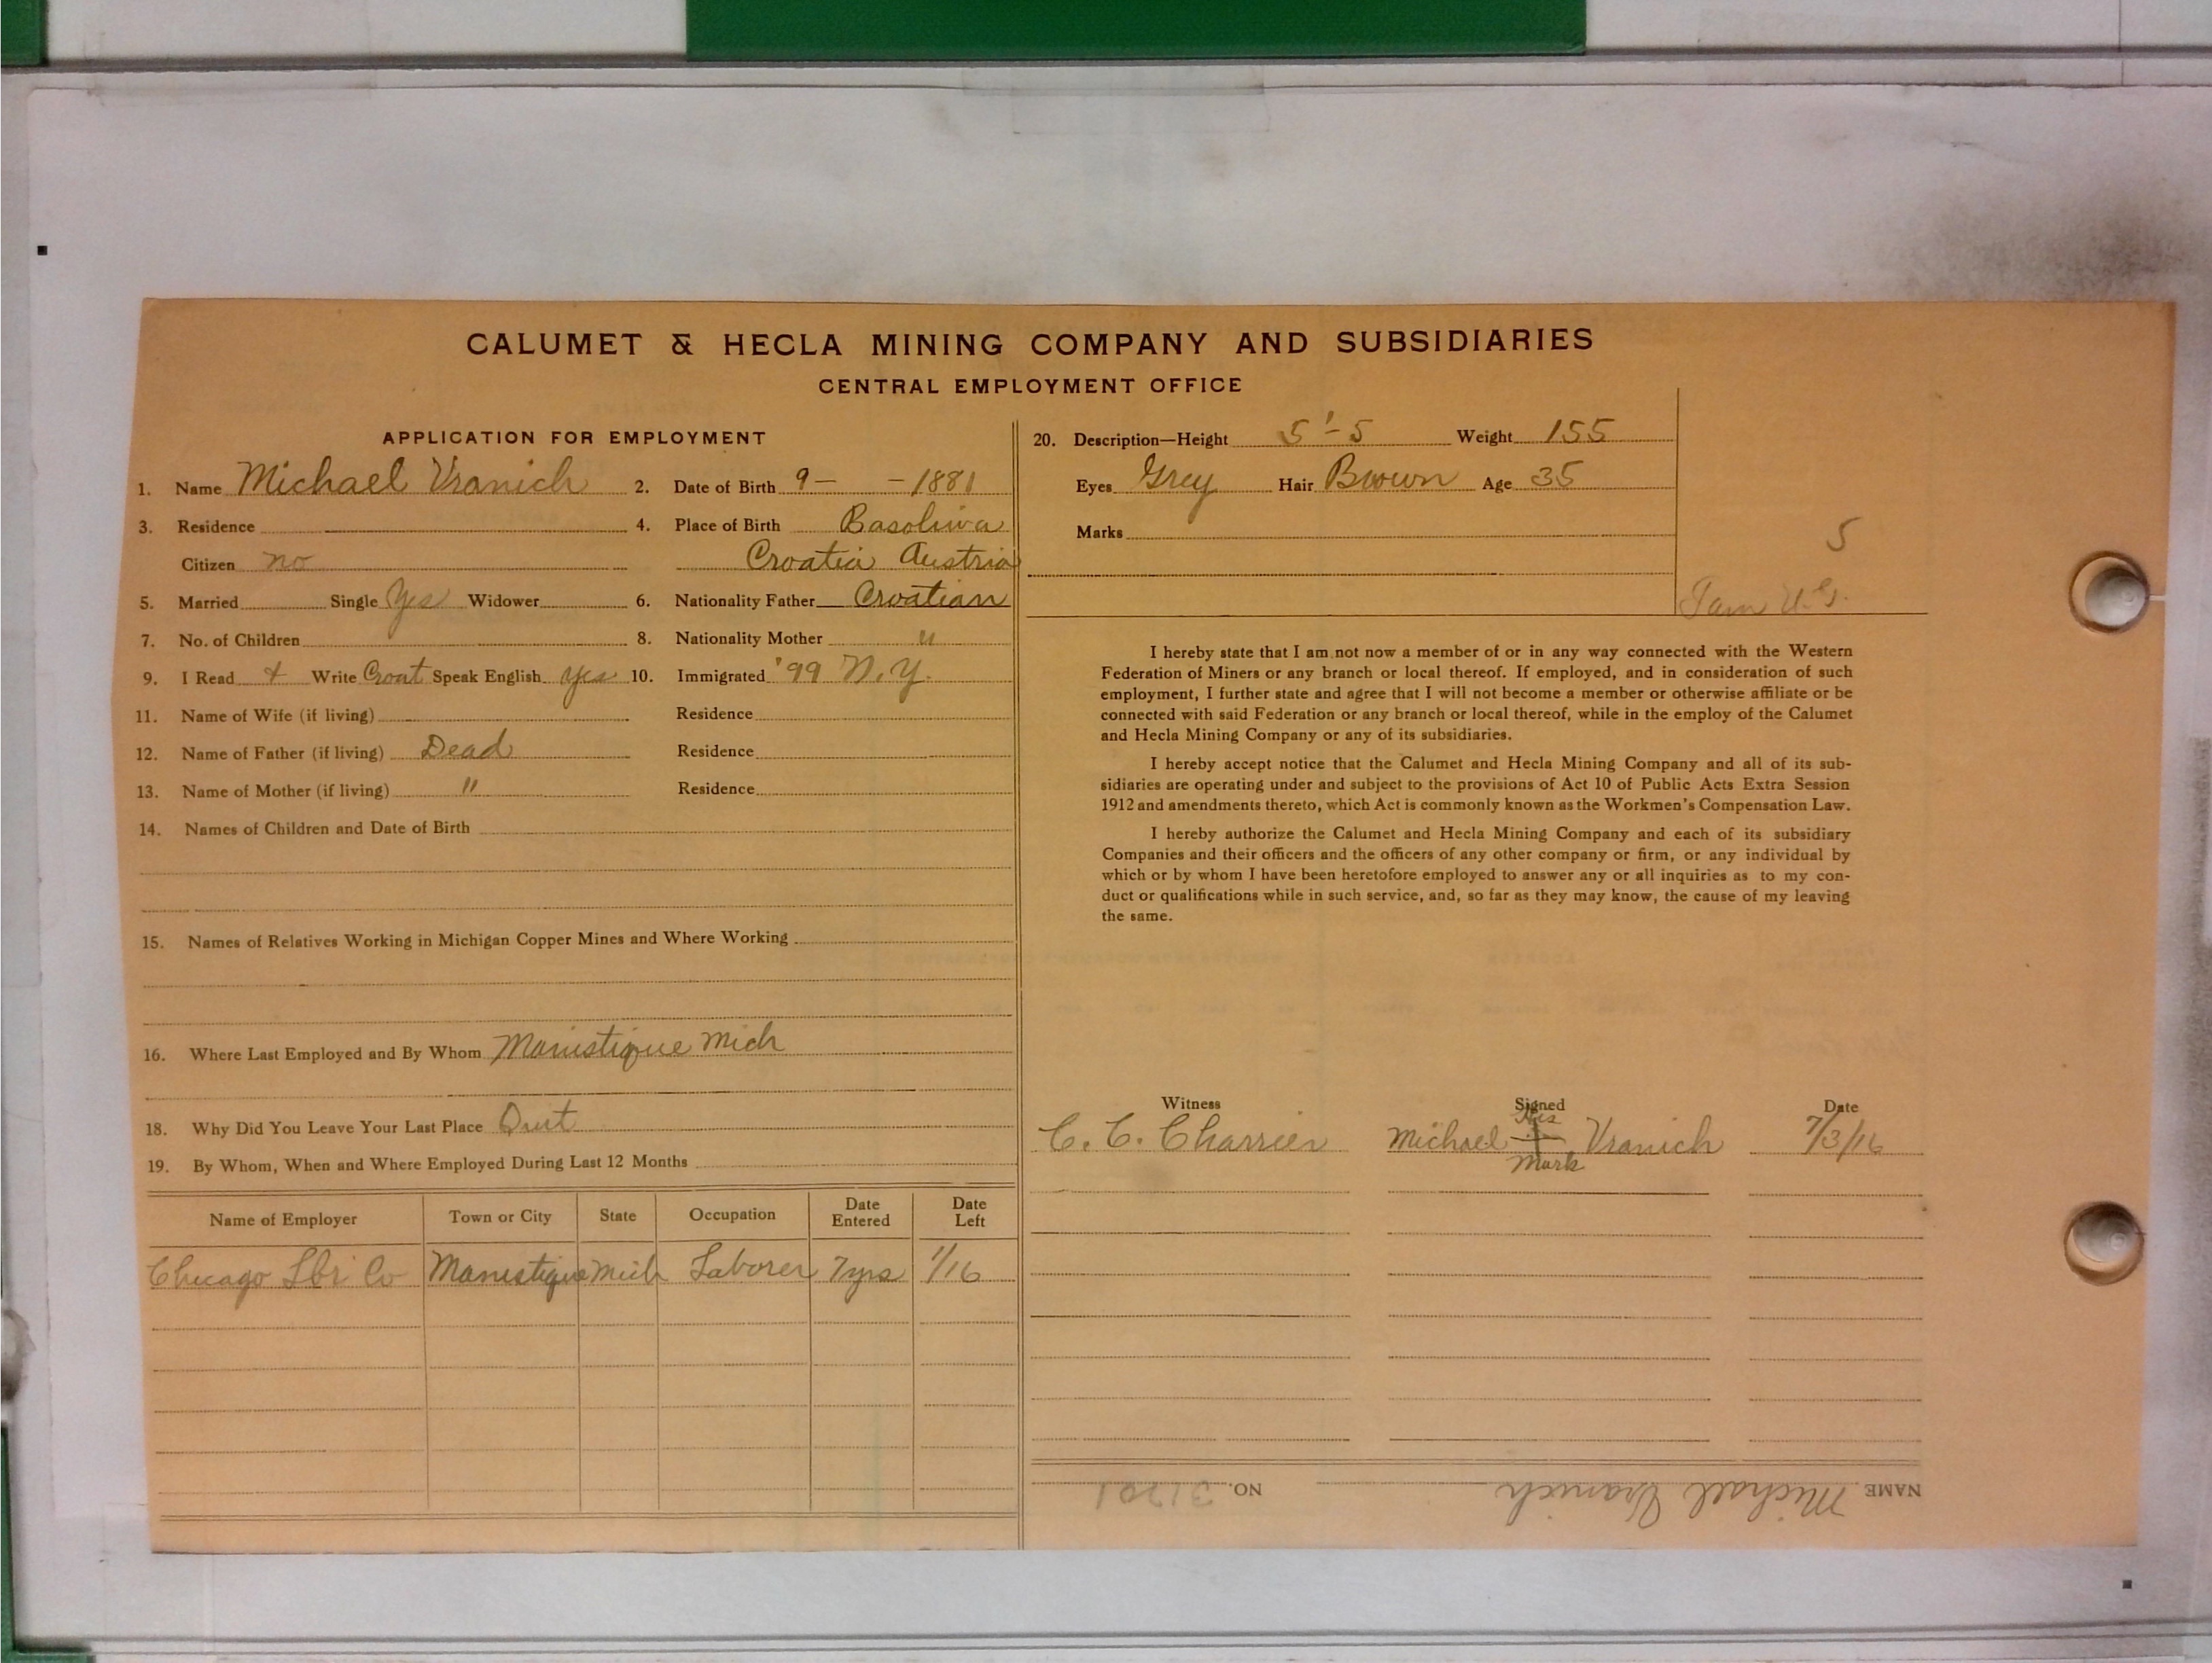 CALUMET & HECLA MINING COMPANY AND SUBSIDIARIES
CENTRAL EMPLOYMENT OFFICE
APPLICATION FOR EMPLOYMENT
1. Name Michael Vranich 2. Date of Birth 9- -1881
3. Residence 4. Place of Birth Basoliva
Citizen no Croatia Austria
5. Married Single Yes Widower 6. Nationality Father Croatian
7. No. of Children 8. Nationality Mother "
9. I Read & Write Croat Speak English yes 10. Immigrated '99 N.Y.
11. Name of Wife (if living) Residence
12. Name of Father (if living) Dead Residence
13. Name of Mother (if living) " Residence
14. Names of Children and Date of Birth
15. Names of Relatives Working in Michigan Copper Mines and Where Working
16. Where Last Employed and By Whom Manistique Mich
18. Why Did You Leave Your Last Place Quit
19. By Whom, When and Where Employed During Last 12 Months
Name of Employer Town or City State Occupation Date Entered Date Left
Chicago Lbr Co Manistique Mich Laborer 7yrs 1/16
20. Description—Height 5'-5 Weight 155
Eyes Grey Hair Brown Age 35
Marks
5
I hereby state that I am not now a member of or in any way connected with the Western
Federation of Miners or any branch or local thereof. If employed, and in consideration of such
employment, I further state and agree that I will not become a member or otherwise affiliate or be
connected with said Federation or any branch or local thereof, while in the employ of the Calumet
and Hecla Mining Company or any of its subsidiaries.
I hereby accept notice that the Calumet and Hecla Mining Company and all of its sub-
sidiaries are operating under and subject to the provisions of Act 10 of Public Acts Extra Session
1912 and amendments thereto, which Act is commonly known as the Workmen's Compensation Law.
I hereby authorize the Calumet and Hecla Mining Company and each of its subsidiary
Companies and their officers and the officers of any other company or firm, or any individual by
which or by whom I have been heretofore employed to answer any or all inquiries as to my con-
duct or qualifications while in such service, and, so far as they may know, the cause of my leaving
the same.
Witness Signed Date
His
C. C. Charrier Michael + Vranich 7/3/16
Mark
NAME Michael Vranich NO.